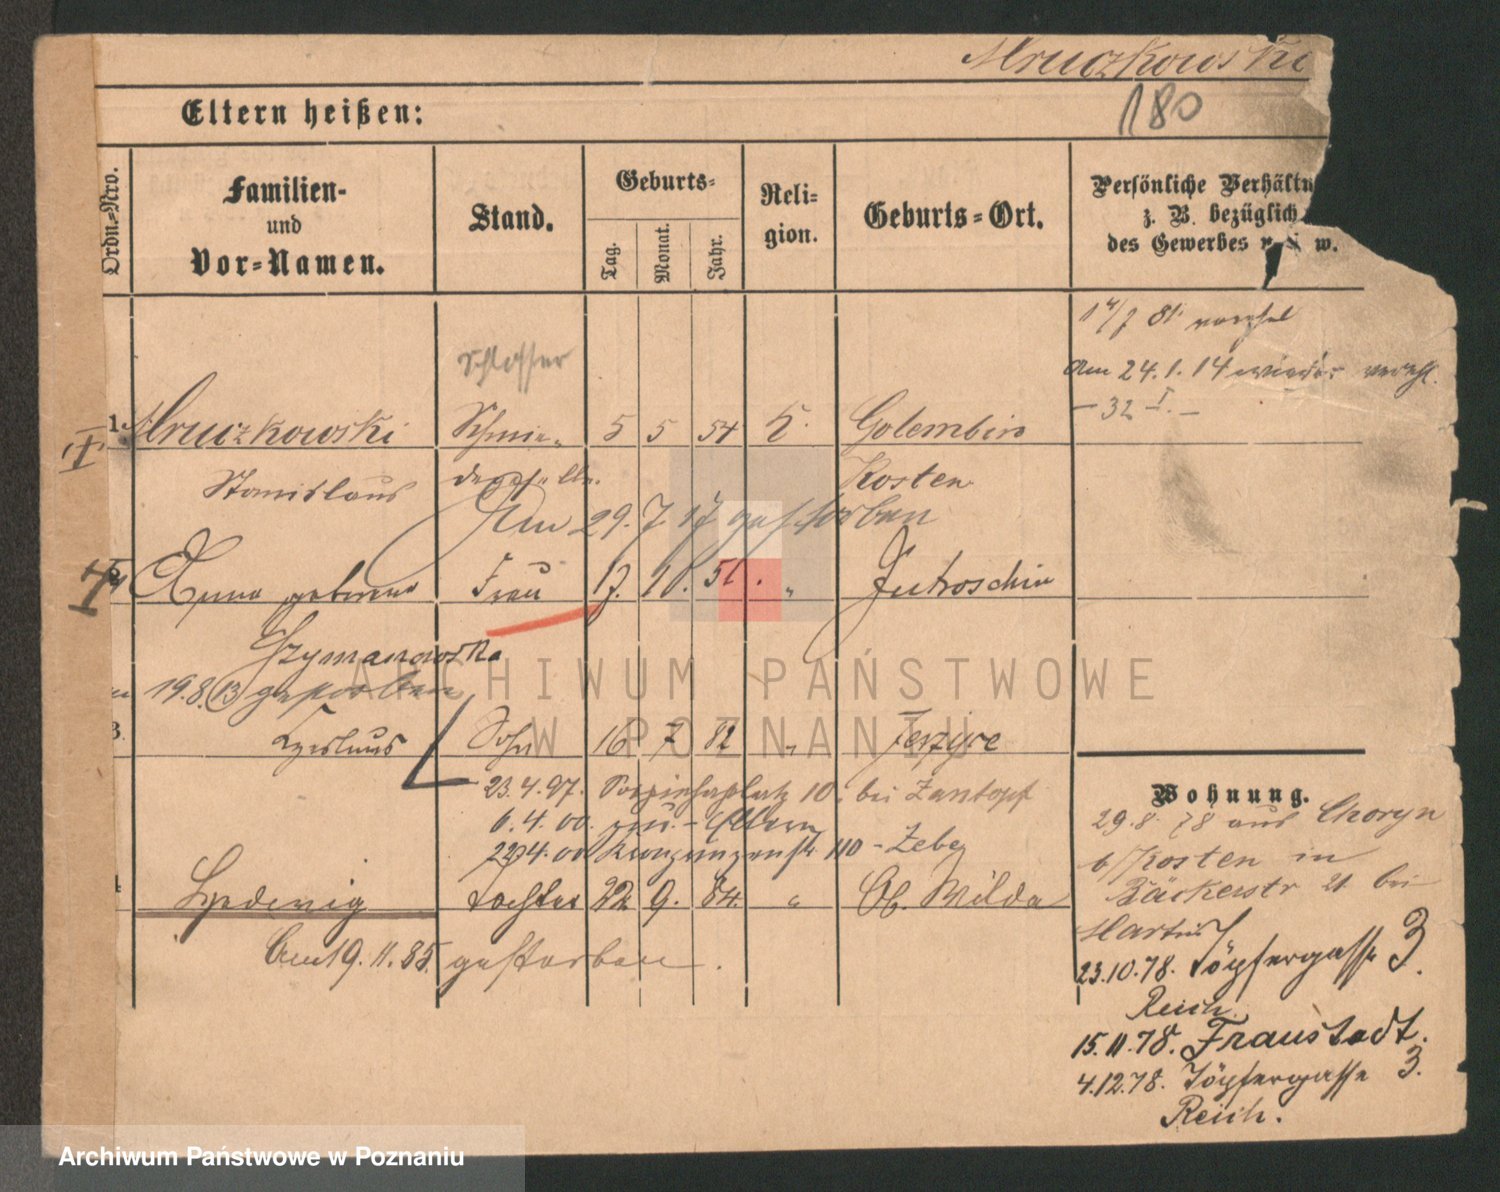 Mruczkowski
180
Eltern heißen:
Ordn.-Nro.
Familien-
und
Vor-Namen.
Stand.
Geburts-
Tag.
Monat.
Jahr.
Reli-
gion.
Geburts-Ort.
Persönliche Verhältn
z. B. bezüglich
des Gewerbes u. s. w.
81 verehel
am 24.1.14 wieder verehl.
- 32 I. -
Schlosser
I 1. Mruczkowski Schmie- 5 5 54 K. Golembin
Stanislaus degeselle. Kosten
Am 29.7.17 gestorben
Anna geborene Frau 17. 10. " Jutroschin
Szymanowska
19.8.13 gestorben
3. Sohn 16 7 82 " Jerzyce
23.4.97. 10. bei Zantopf
6.4.00. Eltern
110 - Zebe
Hedwig Tochter 22 9. 84. " Ob. Wilda
Am 19.11.85. gestorben.
Wohnung.
29.8.78 aus Choryn
b/Kosten in
Bäckerstr 21 bei
Martin
23.10.78. Töpfergasse 3.
Reich.
15.11.78. Fraustadt.
4.12.78. Töpfergasse 3.
Reich.
ARCHIWUM PAŃSTWOWE
W POZNANIU
Archiwum Państwowe w Poznaniu